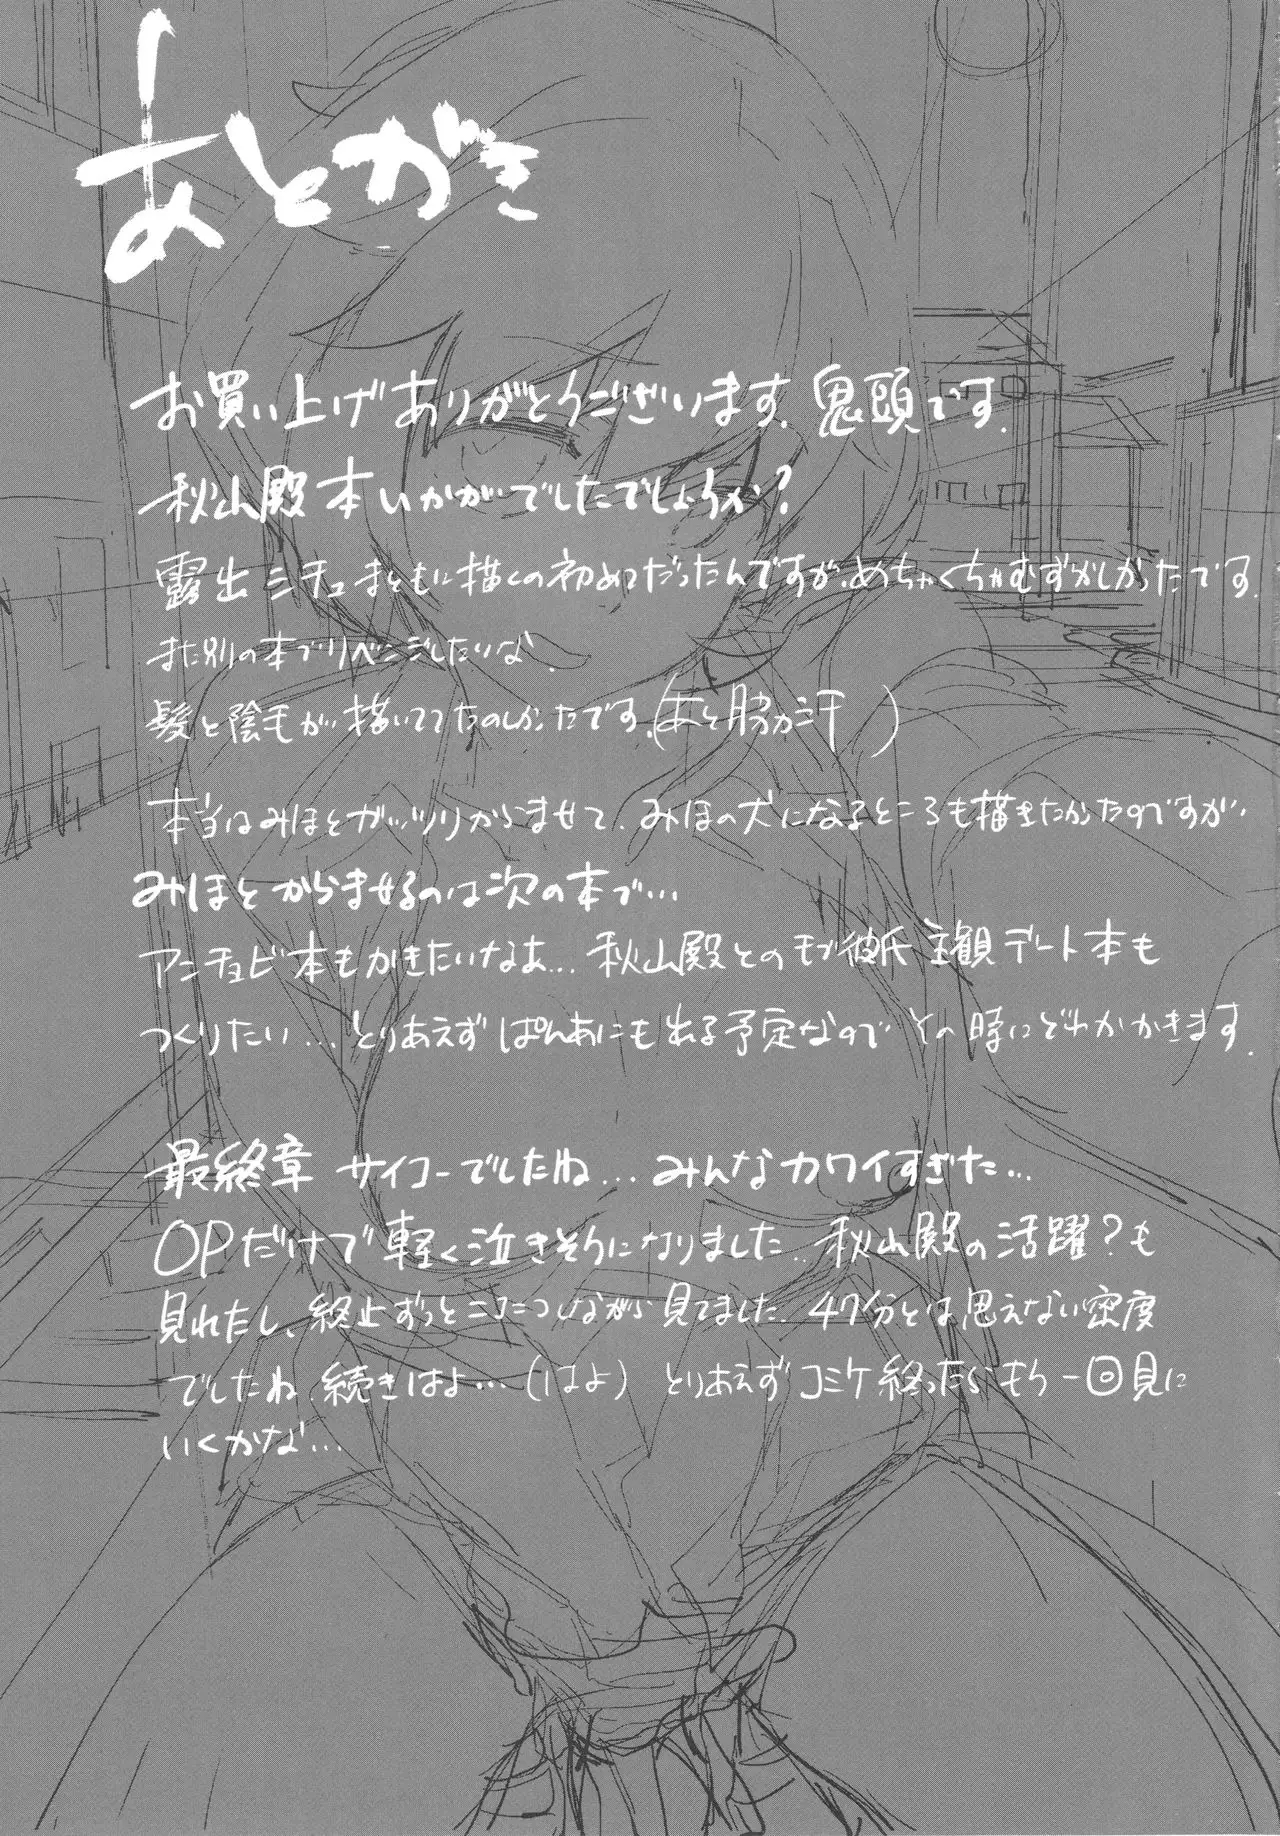 あとがき
お買い上げありがとうございます。鬼頭です.
秋山殿本いかがでしたでしょうか?
露出シチュまともに描くの初めてだったんですが、めちゃくちゃむずかしかったです.
また別の本でリベンジしたいな.
髪と陰毛が描いててたのしかったです.(あと脇か汗 )
本当はみほとガッツリからませて、みほの犬になるところも描きたかったのですが、
みほとからませるのは次の本で…
アンチョビ本もかきたいなぁ…秋山殿とのモブ彼氏主観デート本も
つくりたい…とりあえずぱんあにも出る予定なのでその時にどれかかきます.
最終章サイコーでしたね…みんなカワイイすぎた…
OPだけで軽く泣きそうになりました..秋山殿の活躍?も
見れたし、終止ずっとニコニコしながら見てました. 47分とは思えない密度
でしたね.続きはよ…(はよ) とりあえずコミケ終ったらもう一回見に
いくかな…